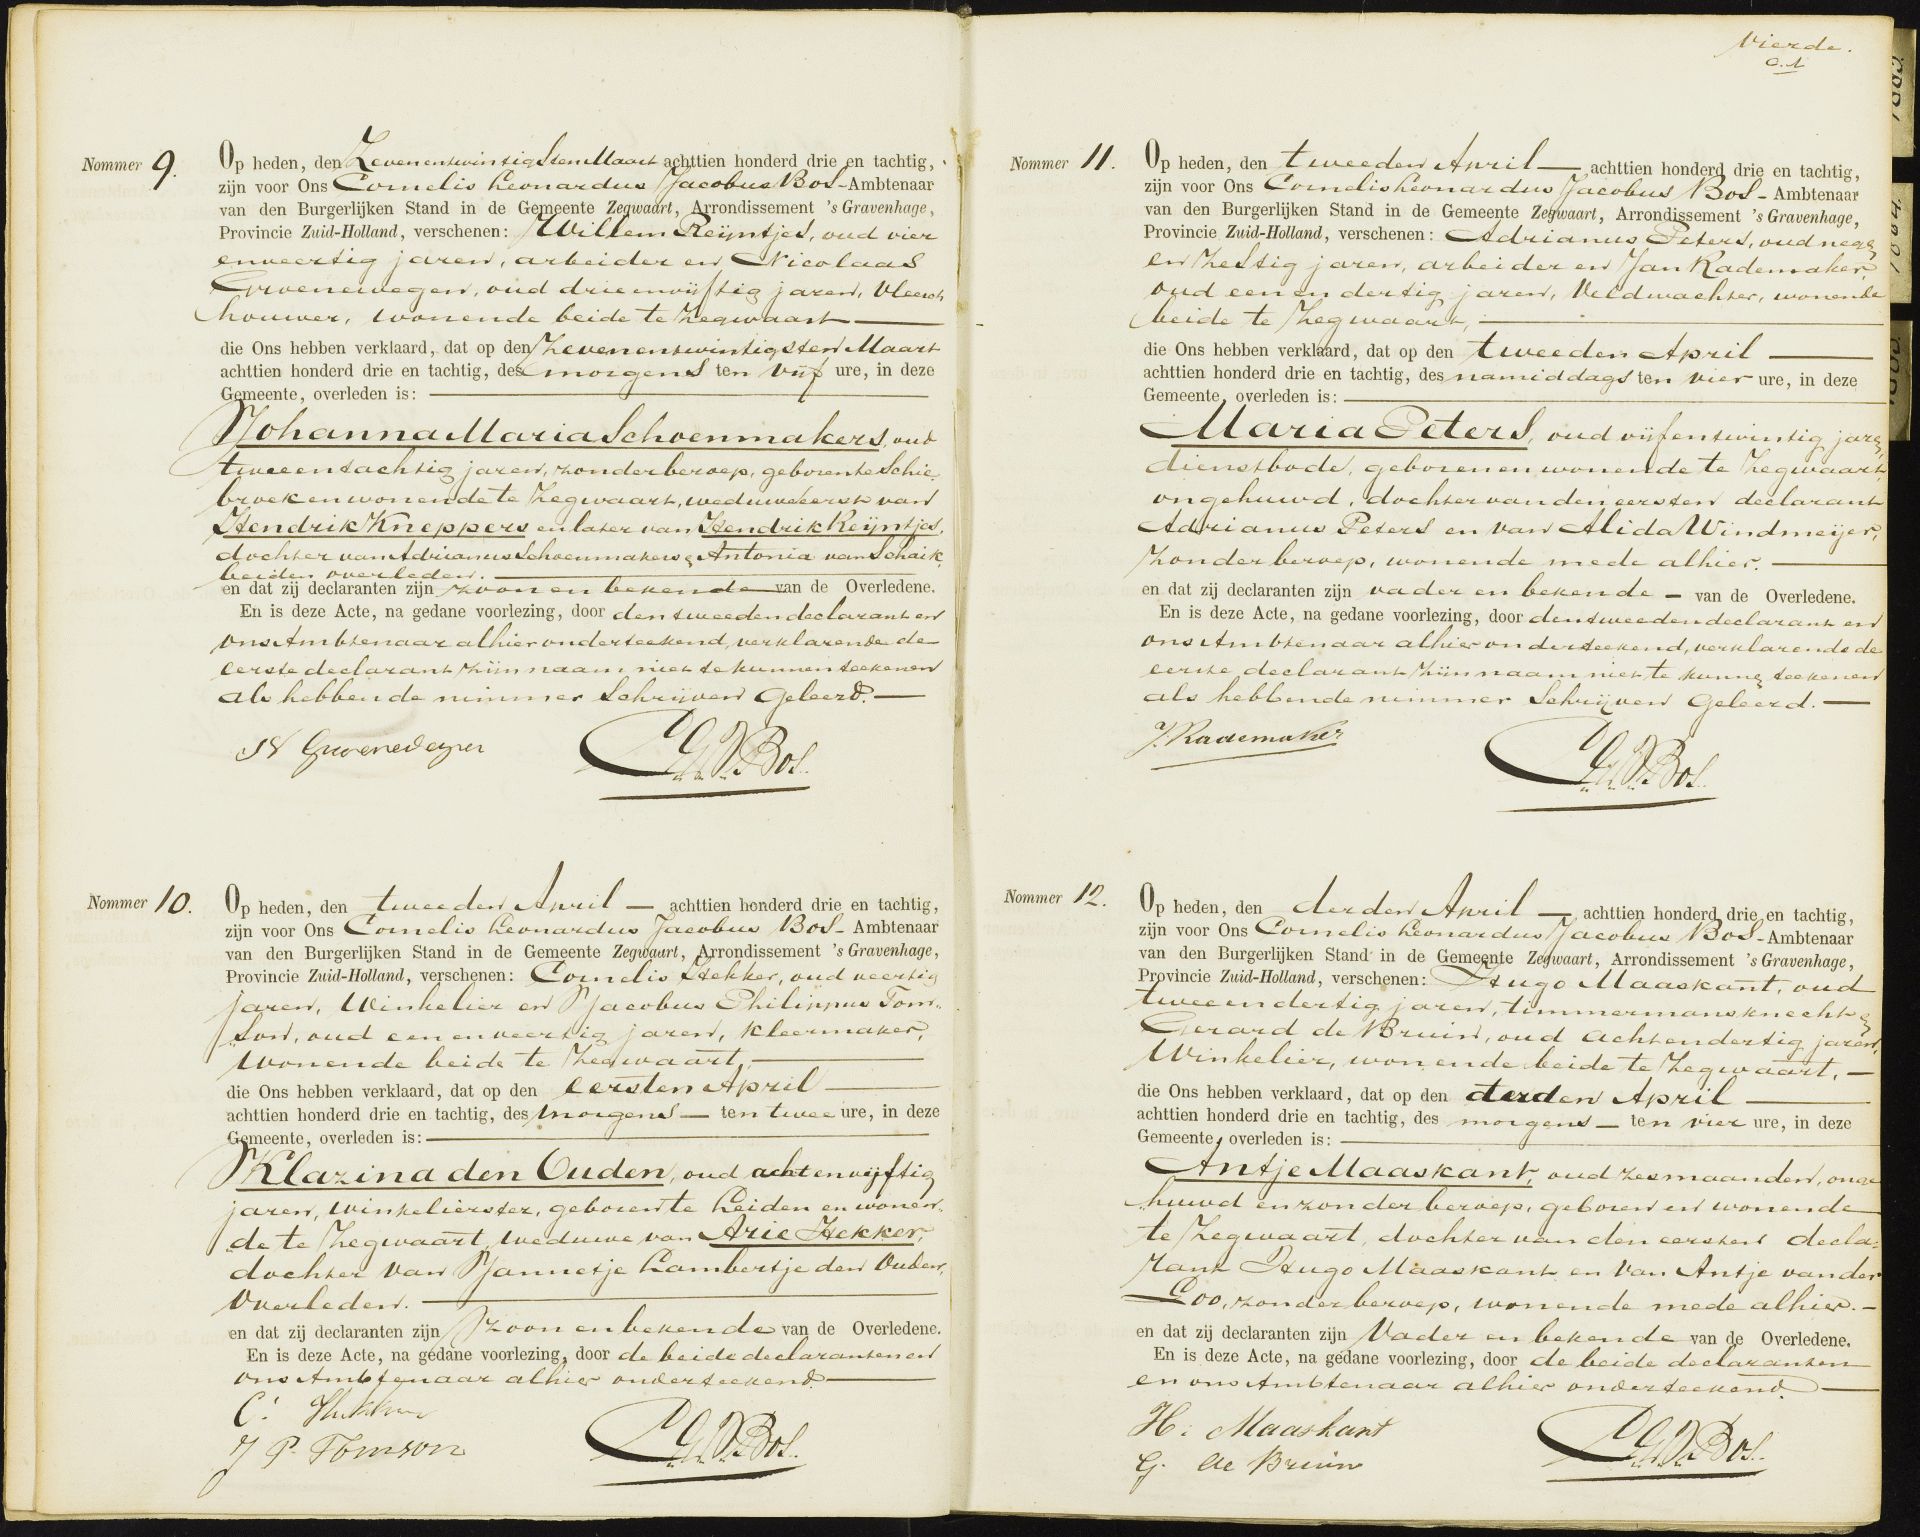 Nommer 9.
Op heden, den Zevenentwintigsten Maart achttien honderd drie en tachtig,
zijn voor Ons Cornelis Leonardus Jacobus Bos - Ambtenaar
van den Burgerlijken Stand in de Gemeente Zegwaart, Arrondissement 's Gravenhage,
Provincie Zuid-Holland, verschenen: Willem Reijntjes, oud vier
enveertig jaren, arbeider en Nicolaas
Groenewegen, oud drieenvijftig jaren, Vleesch
houwer, wonende beide te Zegwaart
die Ons hebben verklaard, dat op den Zevenentwintigsten Maart
achttien honderd drie en tachtig, des morgens ten vijf ure, in deze
Gemeente, overleden is:
Johanna Maria Schoenmakers, oud
tweeentachtig jaren, zonder beroep, geboren te Schie-
broek en wonende te Zegwaart, weduwe eerst van
Hendrik Kneppers en later van Hendrik Reijntjes,
dochter van Adrianus Schoenmakers & Antonia van Schaik,
beiden overleden.
en dat zij declaranten zijn zoon en bekende van de Overledene.
En is deze Acte, na gedane voorlezing, door den tweeden declarant en
ons Ambtenaar alhier onderteekend, verklarende de
eerste declarant zijn naam niet te kunnen teekenen
als hebbende nimmer Schrijven geleerd.
N Groenewegen
C.L.J. Bos.
Nommer 10.
Op heden, den tweeden April - achttien honderd drie en tachtig,
zijn voor Ons Cornelis Leonardus Jacobus Bos - Ambtenaar
van den Burgerlijken Stand in de Gemeente Zegwaart, Arrondissement 's Gravenhage,
Provincie Zuid-Holland, verschenen: Cornelis Hekker, oud veertig
jaren, Winkelier en Jacobus Philippus Tom-
son, oud eenenveertig jaren, kleermaker,
wonende beide te Zegwaart,
die Ons hebben verklaard, dat op den eersten April
achttien honderd drie en tachtig, des morgens - ten twee ure, in deze
Gemeente, overleden is:
Klazina den Ouden, oud achtenvijftig
jaren, winkelierster, geboren te Leiden en wonen-
de te Zegwaart, weduwe van Arie Hekker,
dochter van Jannetje Lambertje den Ouden,
Overleden.
en dat zij declaranten zijn Zoon en bekende van de Overledene.
En is deze Acte, na gedane voorlezing, door de beide declaranten en
ons Ambtenaar alhier onderteekend.
C. Hekker
J P. Tomson
C.L.J. Bos.
Vierde.
Nommer 11.
Op heden, den tweeden April - achttien honderd drie en tachtig,
zijn voor Ons Cornelis Leonardus Jacobus Bos - Ambtenaar
van den Burgerlijken Stand in de Gemeente Zegwaart, Arrondissement 's Gravenhage,
Provincie Zuid-Holland, verschenen: Adrianus Peters, oud negen
en Zestig jaren, arbeider en Jan Rademaker,
oud een en dertig jaren, Veldwachter, wonende
beide te Zegwaart,
die Ons hebben verklaard, dat op den tweeden April
achttien honderd drie en tachtig, des namiddags ten vier ure, in deze
Gemeente, overleden is:
Maria Peters, oud vijfentwintig jaren,
dienstbode, geboren en wonende te Zegwaart,
ongehuwd, dochter van den eersten declarant
Adrianus Peters en van Alida Windmeijer,
zonder beroep, wonende mede alhier.
en dat zij declaranten zijn vader en bekende - van de Overledene.
En is deze Acte, na gedane voorlezing, door den tweeden declarant en
ons Ambtenaar alhier onderteekend, verklarende de
eerste declarant zijn naam niet te kunnen teekenen
als hebbende nimmer Schrijven geleerd.
J. Rademaker
C.L.J. Bos.
Nommer 12.
Op heden, den derden April - achttien honderd drie en tachtig,
zijn voor Ons Cornelis Leonardus Jacobus Bos - Ambtenaar
van den Burgerlijken Stand in de Gemeente Zegwaart, Arrondissement 's Gravenhage,
Provincie Zuid-Holland, verschenen: Hugo Maaskant, oud
tweeendertig jaren, timmermansknecht &
Gerard de Bruin, oud achtendertig jaren,
Winkelier, wonende beide te Zegwaart, -
die Ons hebben verklaard, dat op den derden April
achttien honderd drie en tachtig, des morgens - ten vier ure, in deze
Gemeente, overleden is:
Antje Maaskant, oud zes maanden, onge-
huwd en zonder beroep, geboren en wonende
te Zegwaart, dochter van den eersten decla-
rant Hugo Maaskant en van Antje van der
Loo, zonder beroep, wonende mede alhier. -
en dat zij declaranten zijn Vader en bekende van de Overledene.
En is deze Acte, na gedane voorlezing, door de beide declaranten
en ons Ambtenaar alhier onderteekend.
H: Maaskant
G. de Bruin
C.L.J. Bos.